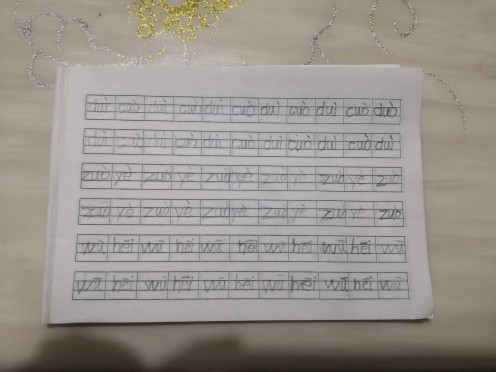 duì cuò duì cuò duì cuò duì cuò duì cuò duò
duì cuò duì cuò duì cuò duì cuò duì cuò duì
zuò yè zuò yè zuò yè zuò yè zuò yè zuò
zuò yè zuò yè zuò yè zuò yè zuò yè zuò
wū hēi wū hēi wū hēi wū hēi wū hēi wū
wū hēi wū hēi wū hēi wū hēi wū hēi wū